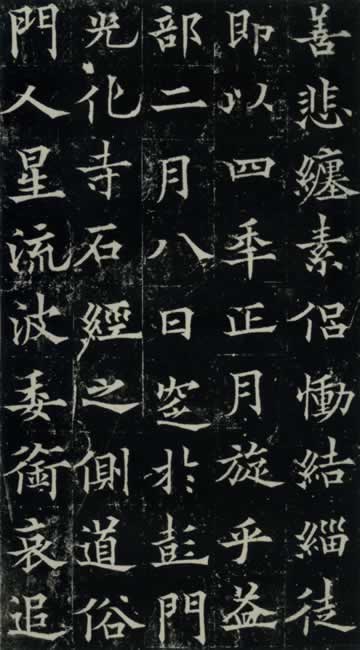 善悲纏素侶慟結緇徒
即以四秊正月旋乎益
部二月八日窆於彭門
光化寺石經之側道俗
門人星流波委銜哀追